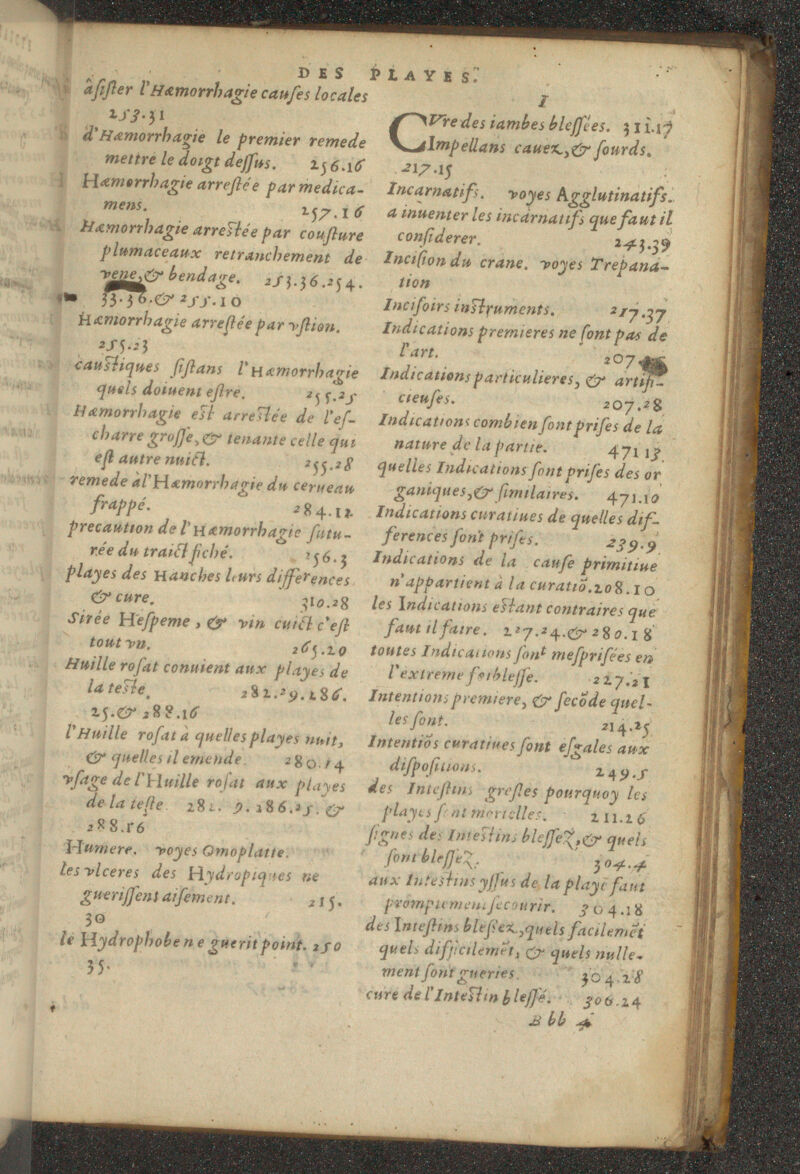 DES PLAYES.
àſiſter l'Hæmorrhagie cauſes locales
253.31
d'Hæmorrhagie le premier remede
mettre le doigt deſſus. 256.16
Hæmorrhagie arreſtée par medica-
mens. 257.16
Hæmorrhagie arreſtée par couſture
plumaceaux retranchement de
vene,& bendage. 253.36.254.
33.36.& 255.10
Hæmorrhagie arreſtée par vſtion.
255.23
cauſtiques ſiſtans l'Hæmorrhagie
quels doiuent eſtre. 255.25
Hæmorrhagie eſt arreſtée de l'eſ-
charre groſſe,& tenante celle qui
eſt autre nuiſt. 255.28
remede al'Hæmorrhagie du cerueau
frappé. 284.12
precaution de l'Hæmorrhagie futu-
rée du traict fiché. 256.3
playes des Hanches leurs differences
& cure. 310.28
Sirée Heſpeme, & vin cuict c'eſt
tout vn. 265.20
Huille roſat conuient aux playes de
la teſte. 282.29.286.
25.& 288.16
l'Huille roſat à quelles playes nuit,
& quelles il emende 280.14
vſage de l'Huille roſat aux playes
de la teſte 282. 9.286.25. &
288.16
Humere. voyes Omoplatte.
les vlceres des Hydropiques ne
gueriſſent aiſement. 215.
30
le Hydrophobe ne guerit point. 250
35.
I
CVre des iambes bleſſées. 311.17
Impellans cauez,& ſourds.
217.15
Incarnatifs. voyes Agglutinatifs.
a inuenter les incarnatifs que faut il
conſiderer. 243.39
Inciſion du crane. voyes Trepana-
tion
Inciſoirs inſtruments. 217.37
Indications premieres ne ſont pas de
l'art. 207
Indications particulieres, & artifi-
cieuſes. 207.28
Indications combien ſont priſes de la
nature de la partie. 471 13
quelles Indications ſont priſes des or
ganiques,& ſimilaires. 471.10
Indications curatiues de quelles dif-
ferences ſont priſes. 239.9
Indications de la cauſe primitiue
n'appartient à la curatiõ.208.10
les Indications eſtant contraires que
faut il faire. 227.24.& 280.18
toutes Indications ſont meſpriſées en
l'extreme foibleſſe. 227.21
Intentions premiere, & ſecõde quel-
les ſont. 214.25
Intentiõs curatiues ſont eſgales aux
diſpoſitions. 249.5
des Inteſtins greſles pourquoy les
playes ſont mortelles. 211.26
ſignes des Inteſtins bleſſez,& quels
ſont bleſſez. 304.4
aux Inteſtins yſſus de la playe faut
promptement ſecourir. 304.18
des Inteſtins bleſſez,quels facilemẽt
quels difficilemẽt, & quels nulle-
ment ſont gueries. 304.28
cure de l'Inteſtin bleſſé. 306.24
Bbb 4